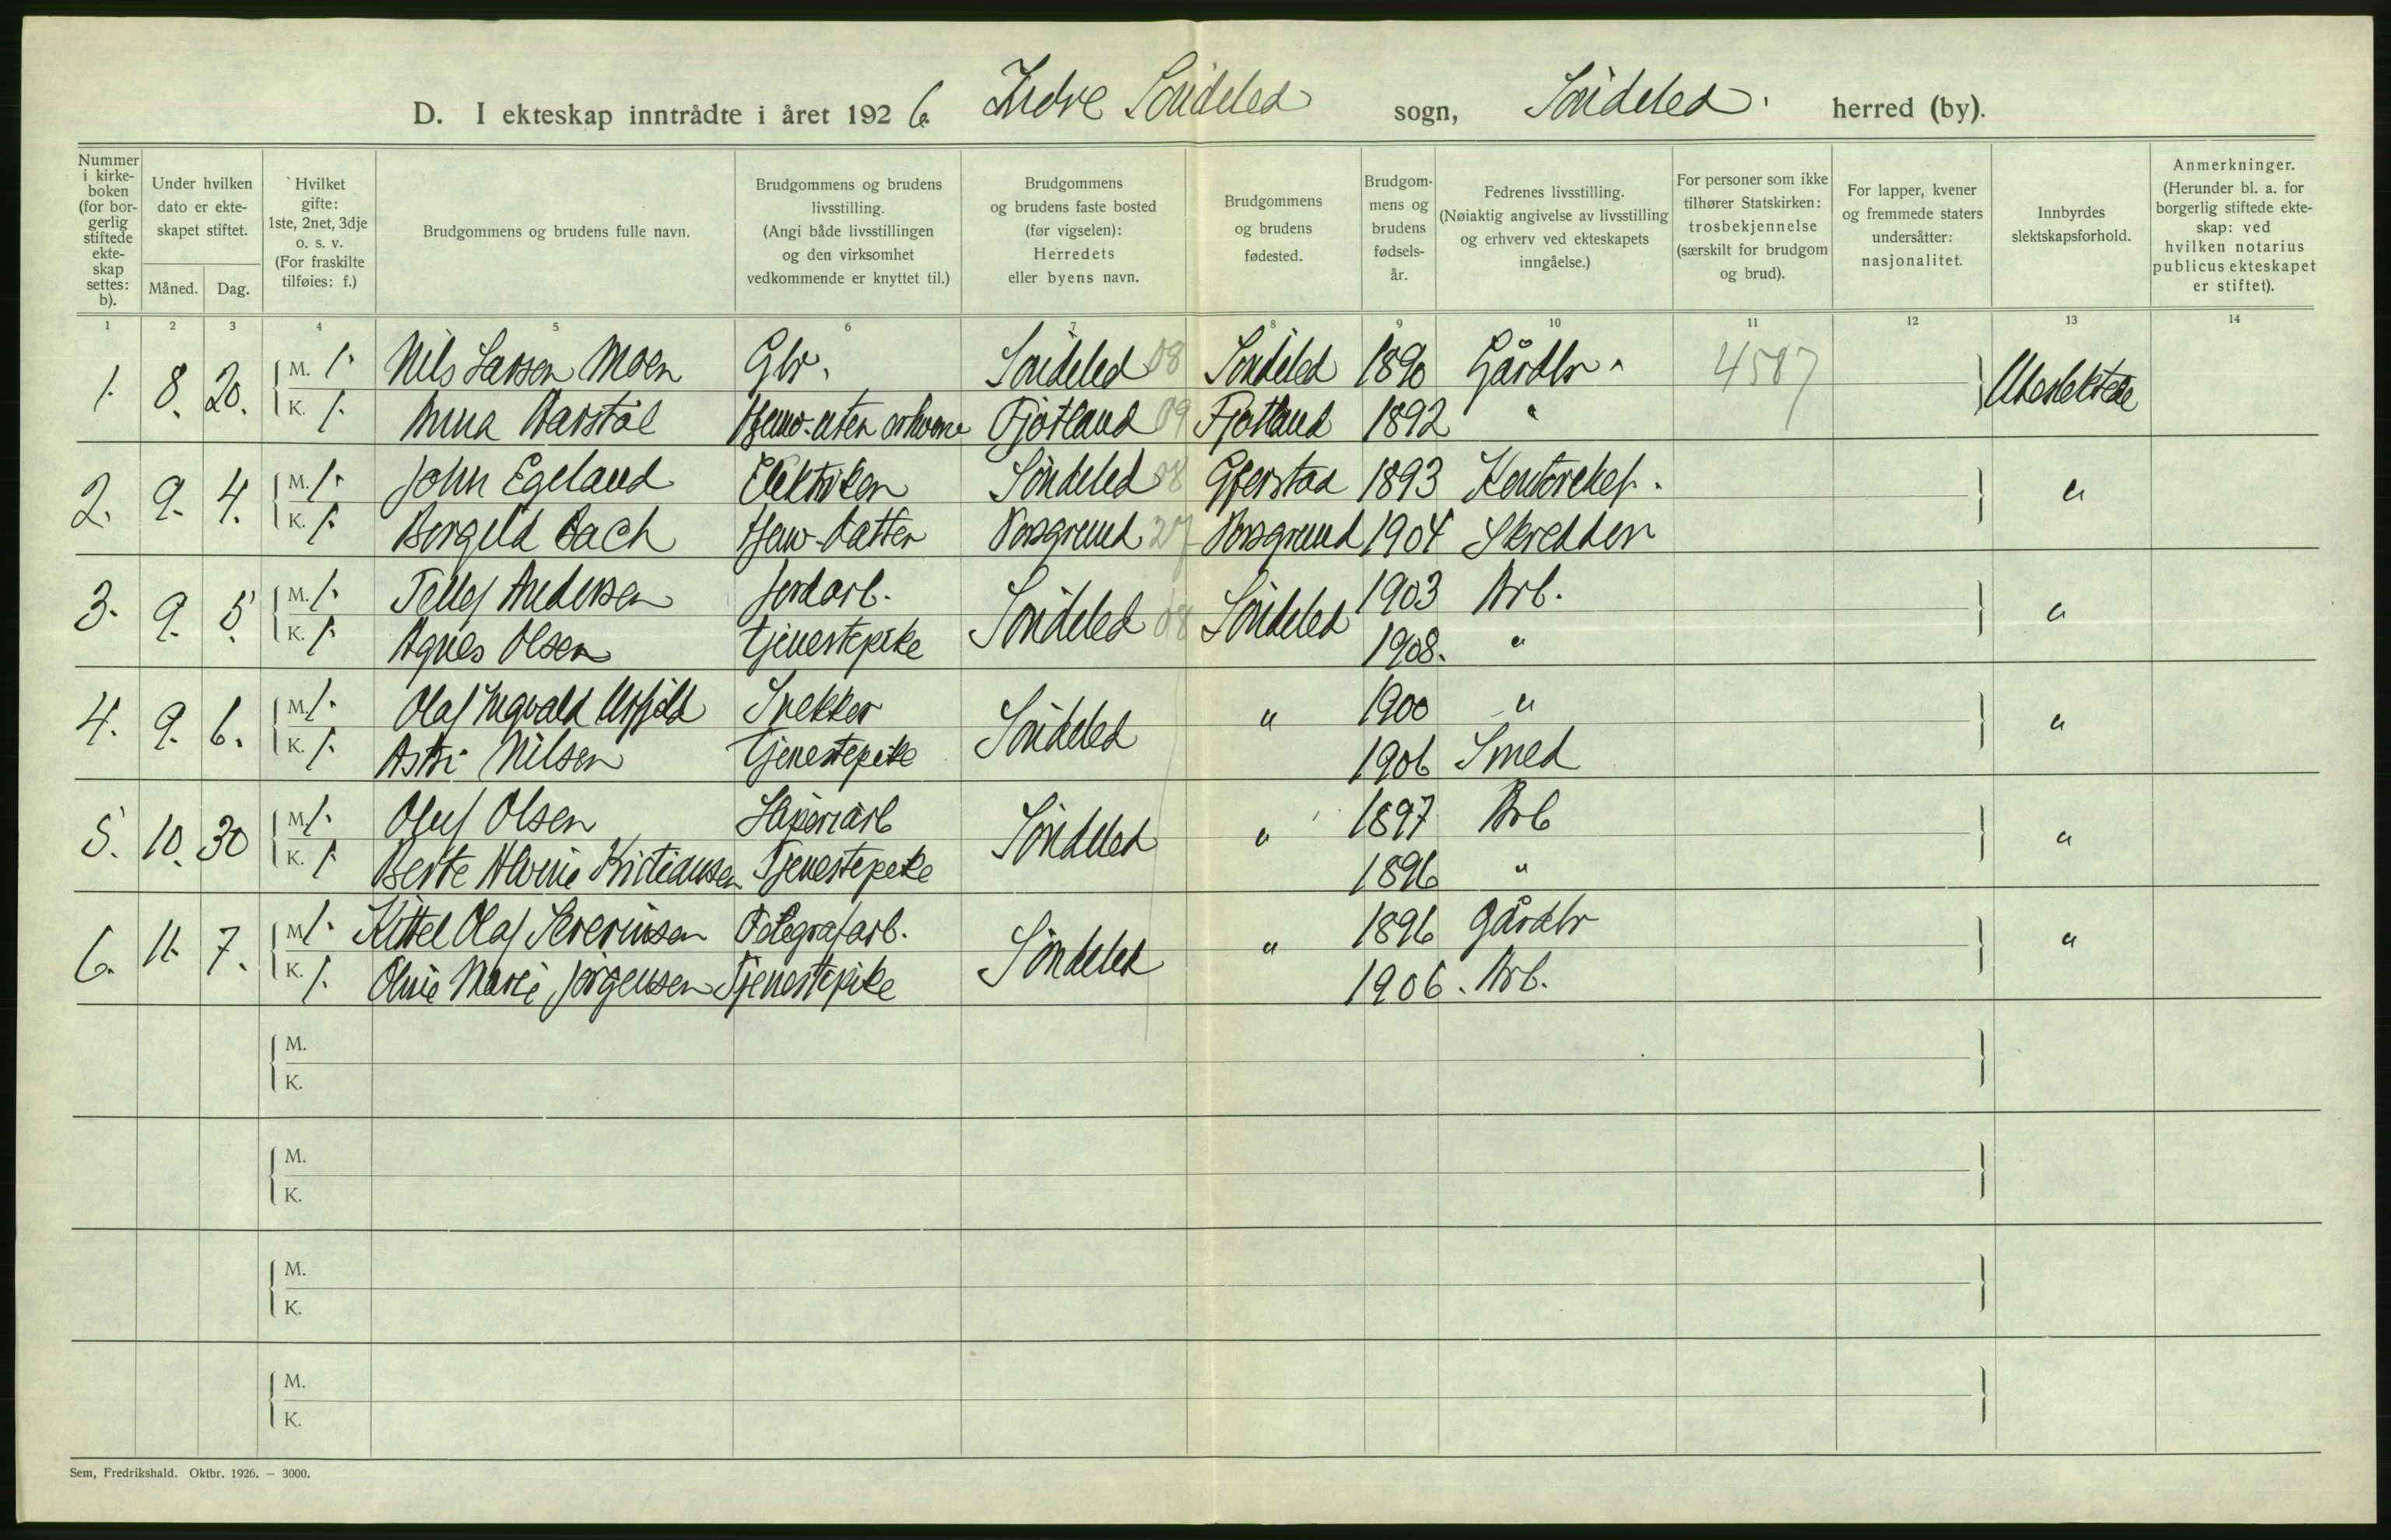 D. I ekteskap inntrådte i året 1926. Indre Söndeled sogn, Söndeled. herred (by).
Nummer i kirke-boken (for bor-gerlig stiftede ekte-skap settes: b).
Under hvilken dato er ekte-skapet stiftet.
Måned. Dag.
Hvilket gifte: 1ste, 2net, 3dje o. s. v. (For fraskilte tilføies: f.)
Brudgommens og brudens fulle navn.
Brudgommens og brudens livsstilling. (Angi både livsstillingen og den virksomhet vedkommende er knyttet til.)
Brudgommens og brudens faste bosted (før vigselen): Herredets eller byens navn.
Brudgommens og brudens fødested.
Brudgom-mens og brudens fødsels-år.
Fedrenes livsstilling. (Nøiaktig angivelse av livsstilling og erhverv ved ekteskapets inngåelse.)
For personer som ikke tilhører Statskirken: trosbekjennelse (særskilt for brudgom og brud).
For lapper, kvener og fremmede staters undersåtter: nasjonalitet.
Innbyrdes slektskapsforhold.
Anmerkninger. (Herunder bl. a. for borgerlig stiftede ekte-skap: ved hvilken notarius publicus ekteskapet er stiftet).
1 2 3 4 5 6 7 8 9 10 11 12 13 14
1. 8. 20. M. 1. Nils Larsen Moen Gbr. Söndeled 08 Söndeled 1890 Gårdbr. 4587 Ubeslektede
K. 1. Anna Narstöl Hjemv. uten erhverv Fjotland 09 Fjotland 1892 "
2. 9. 4. M. 1. John Egeland Elektriker Söndeled 08 Gjerstad 1893 Kontorchef. "
K. 1. Borgild Bach Hjemv. datter Porsgrund 27 Porsgrund 1904 Skredder
3. 9. 5. M. 1. Tellef Andersen Jordarb. Söndeled 08 Söndeled 1903 Arb. "
K. 1. Agnes Olsen Tjenestepike 1908. "
4. 9. 6. M. 1. Olaf Ingvald Snekker Söndeled " 1900 " "
K. 1. Astri Nilsen Tjenestepike 1906 Smed
5. 10. 30 M. 1. Oluf Olsen Sliperiarb Söndeled " 1897 Arb "
K. 1. Berte Alvine Kristiansen Tjenestepike 1896 "
6. 11. 7. M. 1. Kittel Olaf Severinsen Telegrafarb. Söndeled " 1896 Gårdbr "
K. 1. Oline Marie Jörgensen Tjenestepike 1906. Arb.
M.
K.
M.
K.
M.
K.
M.
K.
Sem, Fredrikshald. Oktbr. 1926. — 3000.